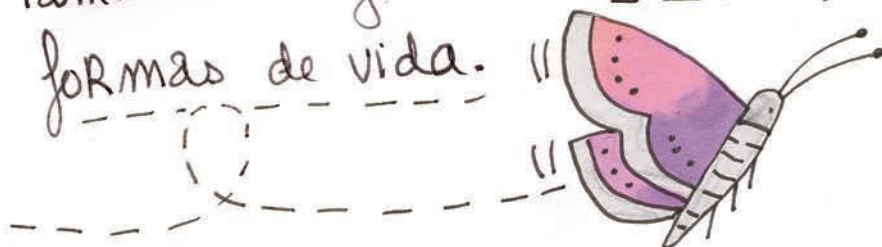 formas de vida.